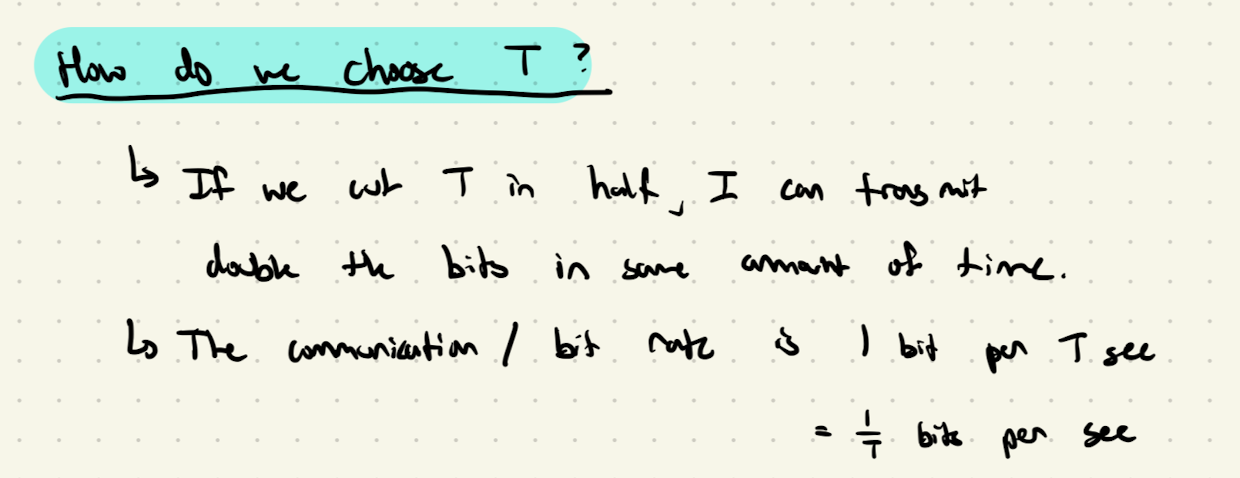 How do we choose T ?
↳ If we cut T in half, I can transmit
double the bits in same amount of time.
↳ The communication / bit rate is 1 bit per T sec
= 1/T bits per sec